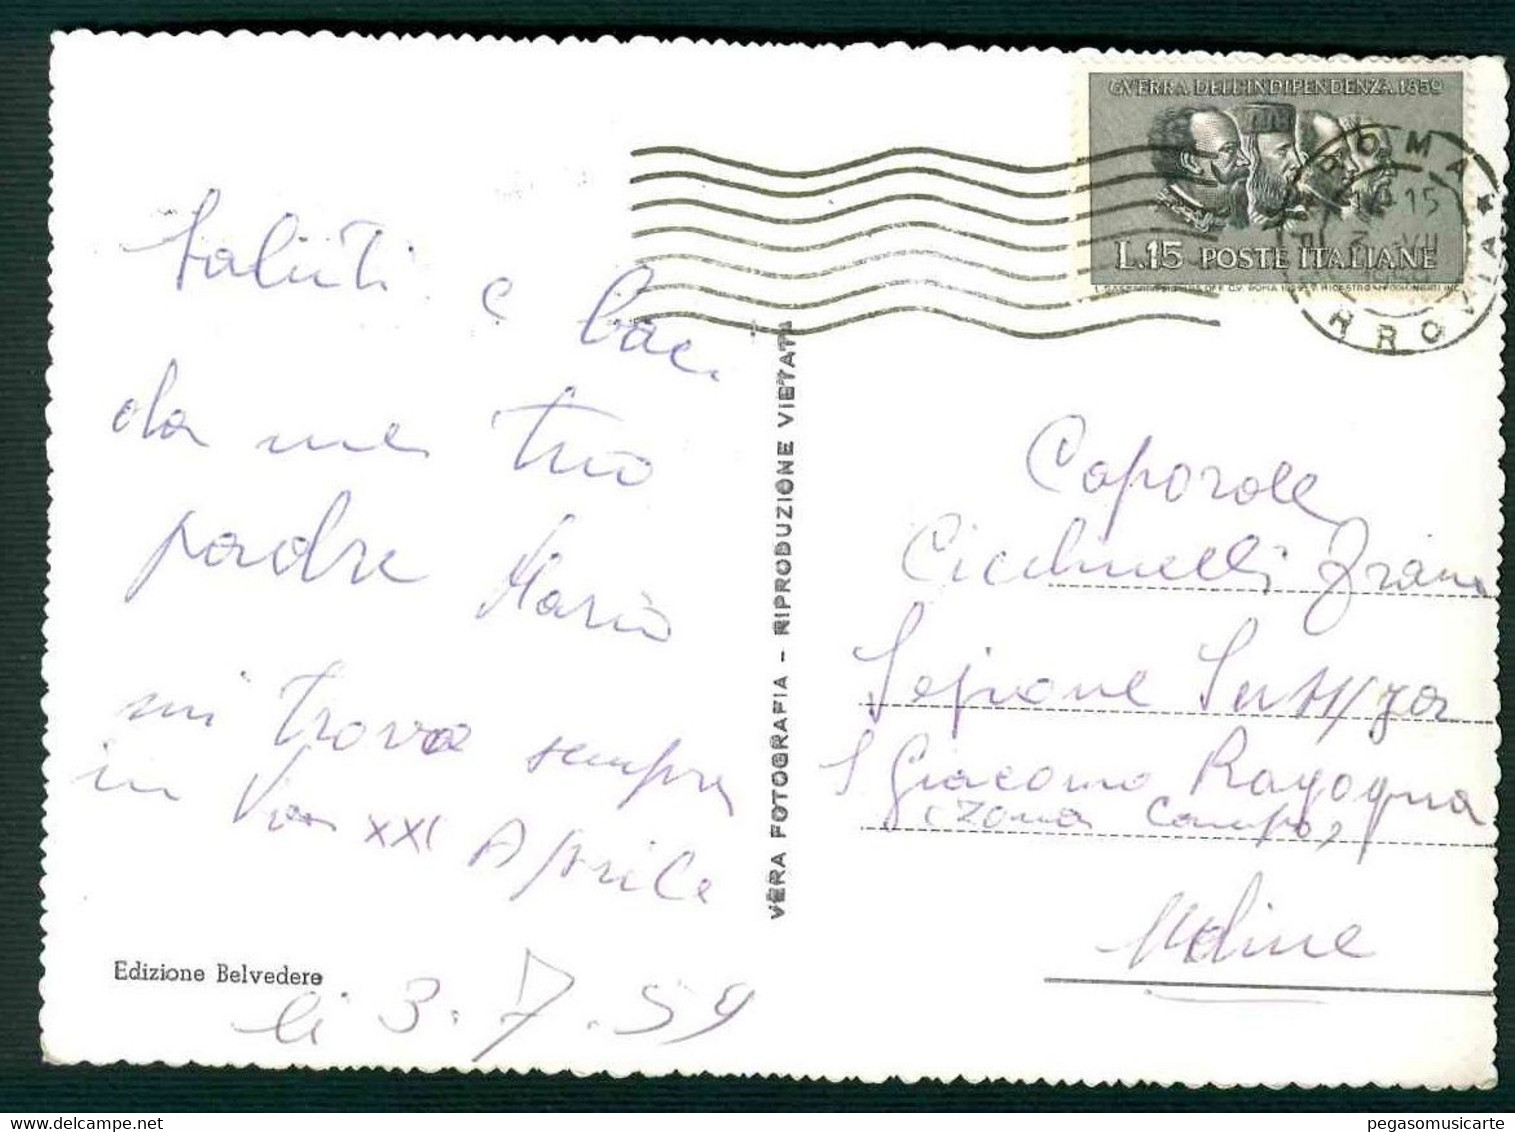 GVERRA DELL'INDIPENDENZA 1859
L.15 POSTE ITALIANE
ROMA
15
3 VII
FERROVIA
Saluti e baci
da me tuo
padre Mario
mi trovo sempre
in Via XXI Aprile
li 3.7.59
Edizione Belvedere
VERA FOTOGRAFIA - RIPRODUZIONE VIETATA
Caporale
Franc
S Giacomo Ragogna
(Zona Campo)
Udine
pegasomusicarte